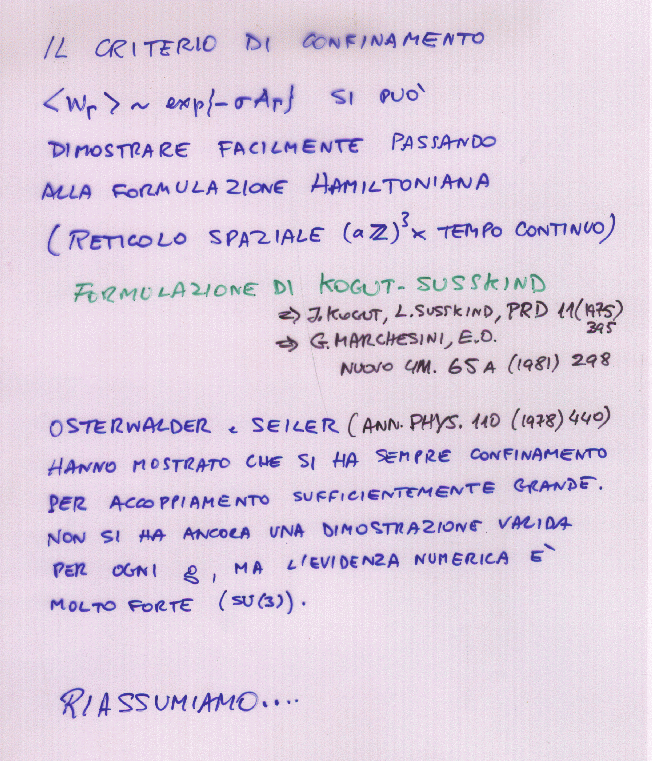 IL CRITERIO DI CONFINAMENTO
<W_Γ> ~ exp{-σA_Γ} SI PUÒ
DIMOSTRARE FACILMENTE PASSANDO
ALLA FORMULAZIONE HAMILTONIANA
(RETICOLO SPAZIALE (aℤ)³ × TEMPO CONTINUO)
FORMULAZIONE DI KOGUT-SUSSKIND
⇒ J. KOGUT, L. SUSSKIND, PRD 11 (1975)
395
⇒ G. MARCHESINI, E.O.
NUOVO CIM. 65 A (1981) 298
OSTERWALDER e SEILER (ANN. PHYS. 110 (1978) 440)
HANNO MOSTRATO CHE SI HA SEMPRE CONFINAMENTO
PER ACCOPPIAMENTO SUFFICIENTEMENTE GRANDE.
NON SI HA ANCORA UNA DIMOSTRAZIONE VALIDA
PER OGNI g, MA L'EVIDENZA NUMERICA È
MOLTO FORTE (SU(3)).
RIASSUMIAMO....